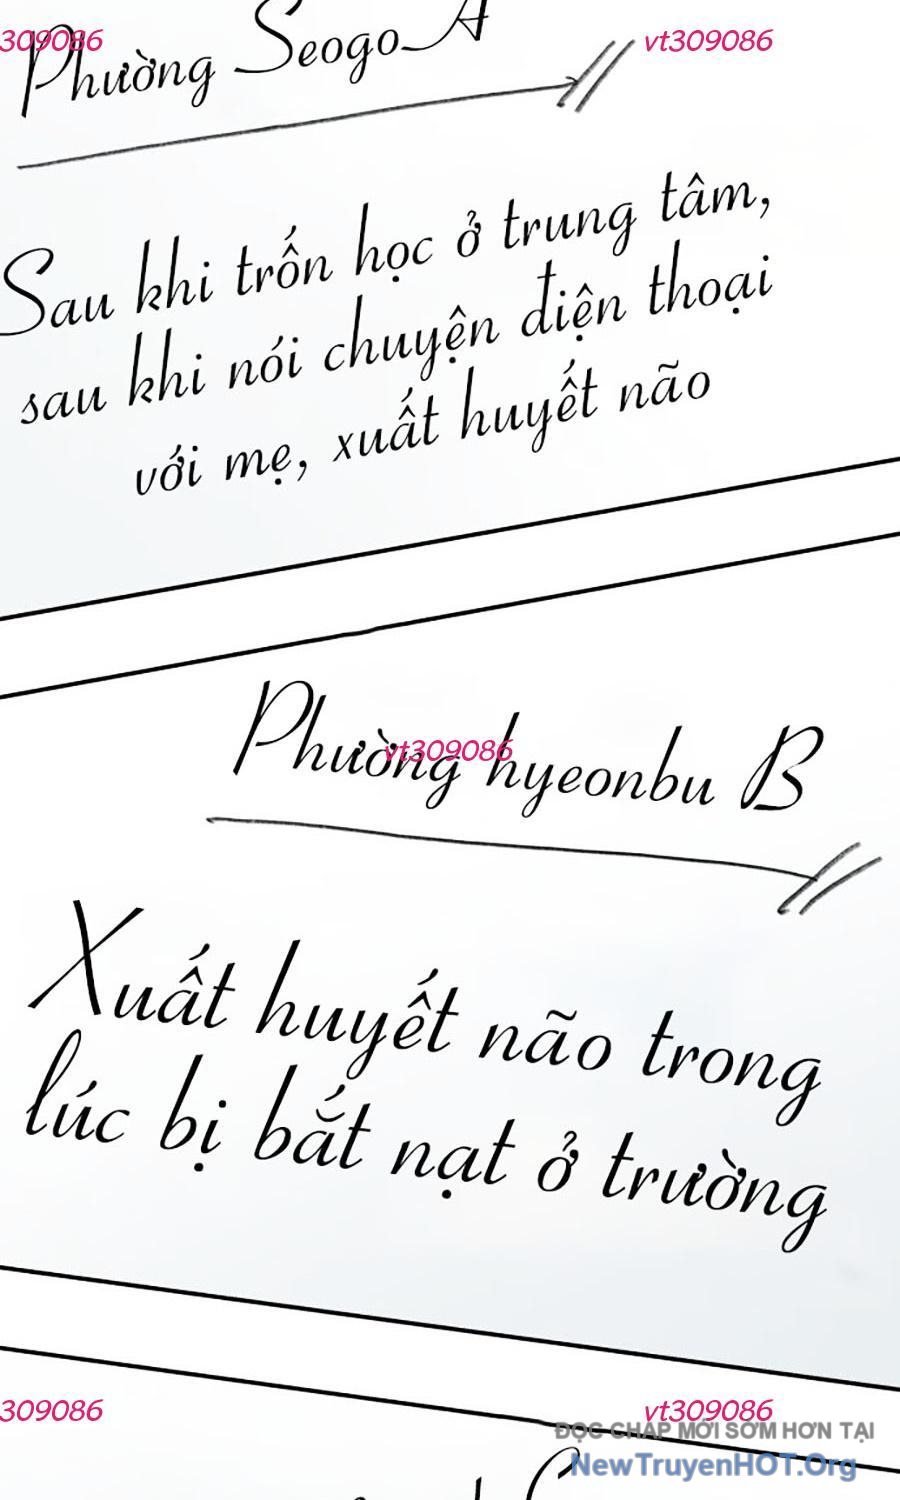 309086
vt309086
Phường Seogo A
Sau khi trốn học ở trung tâm,
sau khi nói chuyện điện thoại
với mẹ, xuất huyết não
Phường hyeonbu B
vt309086
Xuất huyết não trong
lúc bị bắt nạt ở trường
309086
vt309086
ĐỌC CHAP MỚI SỚM HƠN TẠI
NewTruyenHOT.Org